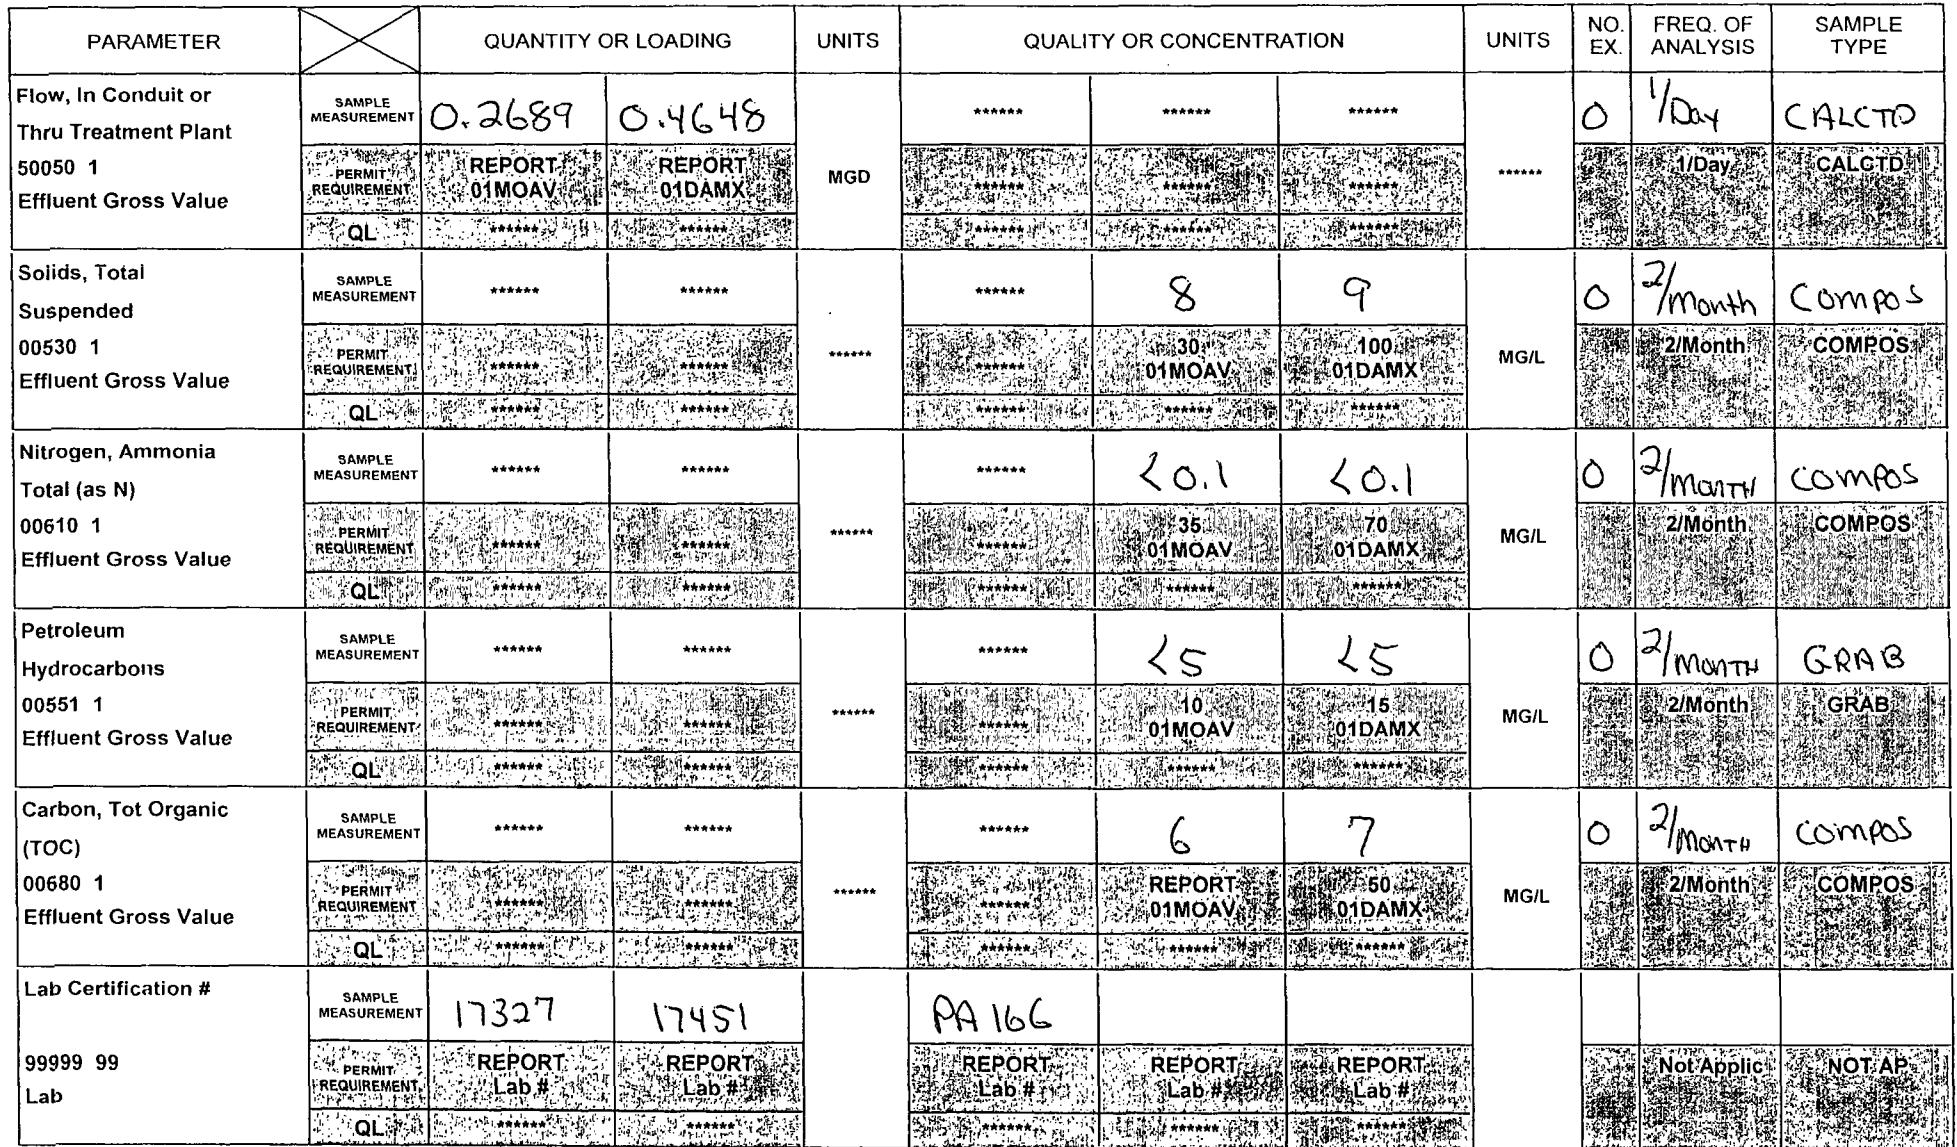 PARAMETER QUANTITY OR LOADING UNITS QUALITY OR CONCENTRATION UNITS NO. EX. FREQ. OF ANALYSIS SAMPLE TYPE
Flow, In Conduit or
Thru Treatment Plant
50050 1
Effluent Gross Value
SAMPLE MEASUREMENT 0.2689 0.4648 ****** ****** ****** 0 1/Day CALCTD
PERMIT REQUIREMENT REPORT 01MOAV REPORT 01DAMX MGD ****** ****** ****** ****** 1/Day CALCTD
QL ****** ****** ****** ****** ******
Solids, Total
Suspended
00530 1
Effluent Gross Value
SAMPLE MEASUREMENT ****** ****** ****** 8 9 0 2/Month COMPOS
PERMIT REQUIREMENT ****** ****** ****** ****** 30 01MOAV 100 01DAMX MG/L 2/Month COMPOS
QL ****** ****** ****** ****** ******
Nitrogen, Ammonia
Total (as N)
00610 1
Effluent Gross Value
SAMPLE MEASUREMENT ****** ****** ****** <0.1 <0.1 0 2/MONTH COMPOS
PERMIT REQUIREMENT ****** ****** ****** ****** 35 01MOAV 70 01DAMX MG/L 2/Month COMPOS
QL ****** ****** ****** ****** ******
Petroleum
Hydrocarbons
00551 1
Effluent Gross Value
SAMPLE MEASUREMENT ****** ****** ****** <5 <5 0 2/MONTH GRAB
PERMIT REQUIREMENT ****** ****** ****** ****** 10 01MOAV 15 01DAMX MG/L 2/Month GRAB
QL ****** ****** ****** ****** ******
Carbon, Tot Organic
(TOC)
00680 1
Effluent Gross Value
SAMPLE MEASUREMENT ****** ****** ****** 6 7 0 2/MONTH COMPOS
PERMIT REQUIREMENT ****** ****** ****** ****** REPORT 01MOAV 50 01DAMX MG/L 2/Month COMPOS
QL ****** ****** ****** ****** ******
Lab Certification #
99999 99
Lab
SAMPLE MEASUREMENT 17327 17451 PA 166
PERMIT REQUIREMENT REPORT Lab # REPORT Lab # REPORT Lab # REPORT Lab # REPORT Lab # Not Applic NOT AP
QL ****** ****** ****** ****** ******